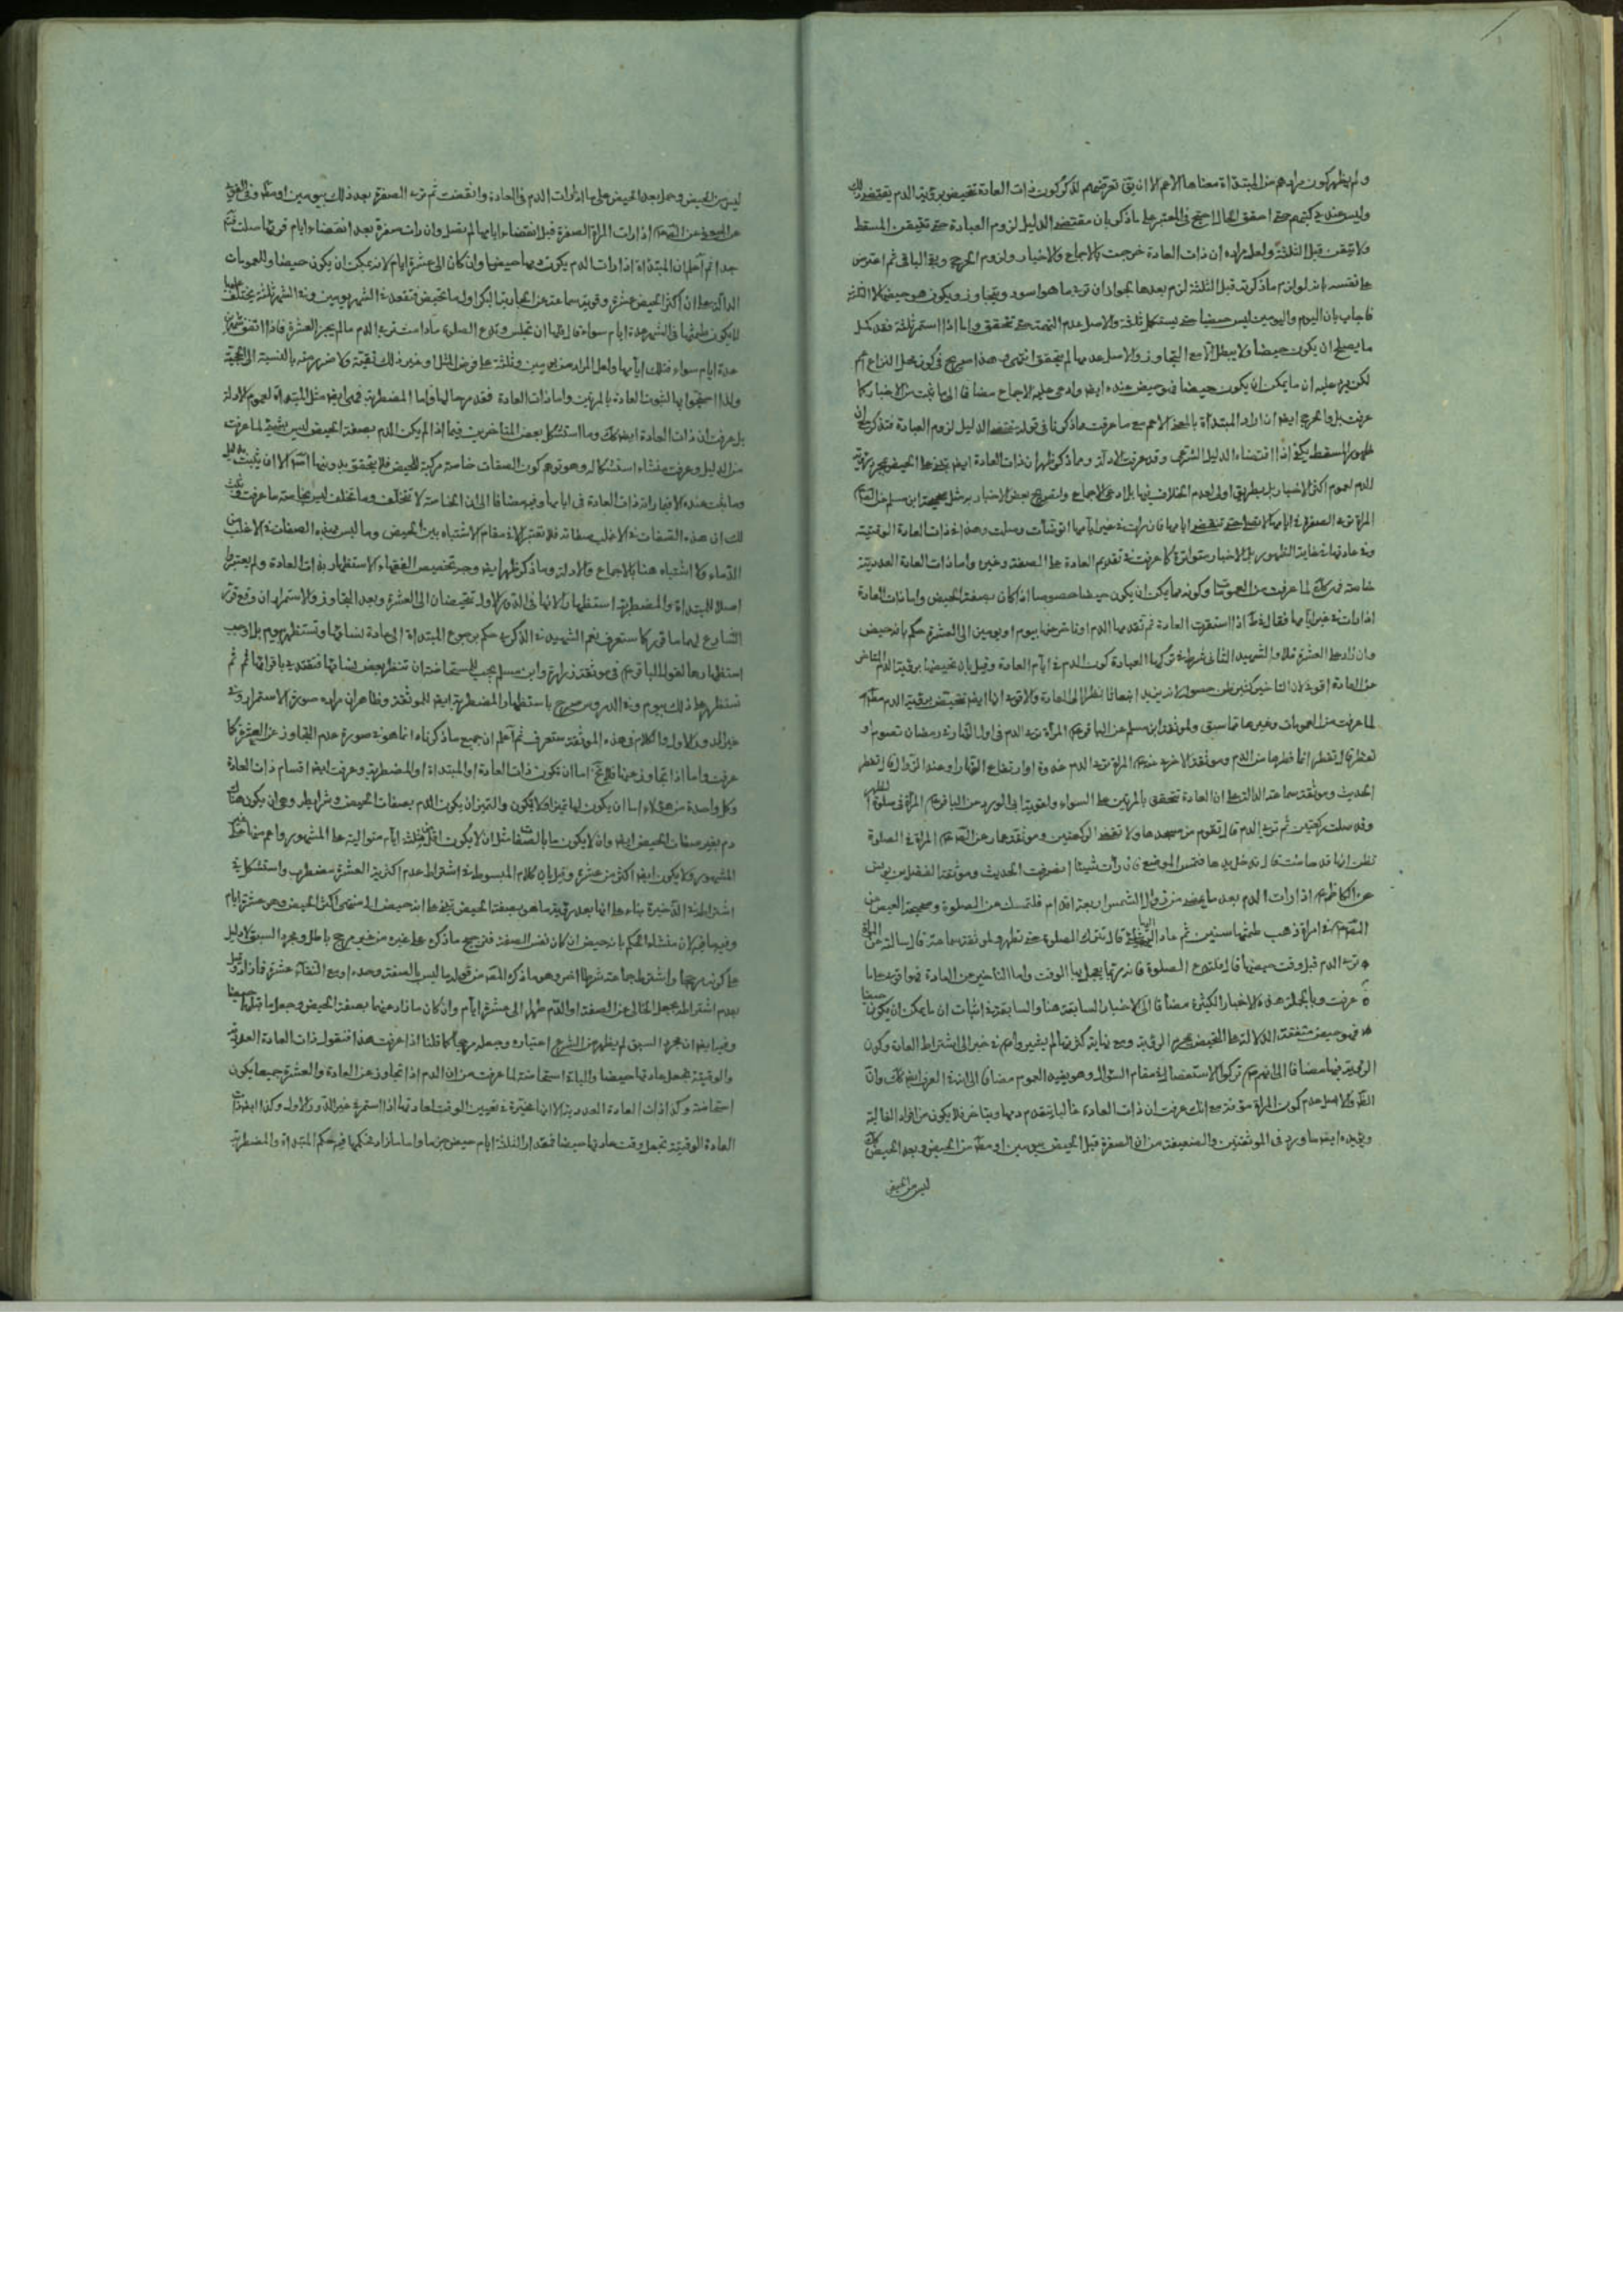 ولم يظهر كون مرادهم من المبتداة معناها الاعم الا ان يق تعرضهم لذكر كون ذات العادة تحيض برؤية الدم يقتضى ذلك
وليس عندى كتبهم حتى احقق الحال احتج فى المعتبر على ما ذكر بان مقتضى الدليل لزوم العبادة حتى تتيقن المسقط
ولا تيقن قبل الثلثة ولعل مراده ان ذات العادة خرجت بالاجماع والاخبار ولزوم الحرج وبقى الباقى ثم اعترض
على نفسه بانه لو لزم ما ذكرته قبل الثلثة لزم بعدها لجواز ان ترى ما هو اسود ويتجاوز ويكون هو حيضها لا الثلثة
فاجاب بان اليوم واليومين ليس حيضا حتى يستكمل ثلثة والاصل عدم التتمة حتى تتحقق واما اذا استمر ثلثة فقد كمل
ما يصلح ان يكون حيضا ولا يبطل الا مع التجاوز والاصل عدمه ما لم يتحقق انتهى وهذا صريح فى كون محل النزاع اعم
لكن يرد عليه ان ما يمكن ان يكون حيضا فهو حيض عنده ايضا وادعى عليه الاجماع مضافا الى ما ثبت من الاخبار كما
عرفت بل والحرج ايضا ان اراد المبتداة بالمعنى الاعم مع ما عرفت ما ذكرنا فى قوله مقتضى الدليل لزوم العبادة فتذكر على ان
ظهور المسقط يكفى اذا اقتضاه الدليل الشرعى وقد عرفت الادلة ومما ذكر ظهر ان ذات العادة ايضا بمجرد رؤية
الدم لعموم اكثر الاخبار بل بطريق اولى لعدم الخلاف فيها بل ادعى الاجماع ولتصريح بعض الاخبار به مثل صحيحة ابن مسلم عن
المراة ترى الصفرة فى ايامها لا تصلى حتى تنقضى ايامها فان رات فى غير ايامها توضأت وصلت وهذا فى ذات العادة الوقتية
وفى عادتها فى غاية الظهور بل الاخبار متواترة كما عرفت فى تقديم العادة على الصفة وغيره واما ذات العادة العددية
خاصة فهى كك لما عرفت من العمومات وكونه مما يمكن ان يكون حيضا خصوصا اذا كان بصفة الحيض واما ذات العادة
اذا رات فى غير ايامها فقال فى ط اذا استقرت العادة ثم تقدمها الدم او تاخر عنها بيوم او يومين الى العشرة حكم بانه حيض
وان زاد على العشرة فلا والشهيد الثانى شرط فى تركها العبادة كون الدم فى ايام العادة وقيل بان تحيضها برؤية الدم المتاخر
عن العادة اقوى لان التاخير يزيد انبعاثا نظرا الى العادة والاقوى انها ايضا تتحيض برؤية الدم مطلقا
لما عرفت من العمومات وغيرها مما سبق ولموثقة ابن مسلم عن الباقر ع المرأة ترى الدم فى اول النهار فى رمضان تصوم او
تفطر قال تفطر انما فطرها من الدم وموثقة الاخرى عنه ع المراة ترى الدم غدوة او ارتفاع النهار او عند الزوال قال تفطر
الحديث وموثقة سماعة الدالة على ان العادة تتحقق بالمرتين على السواء ولقوية ابى الورد عن الباقر ع المرأة فى صلوة الظهر
وقد صلت ركعتين ثم ترى الدم قال تقوم من مسجدها ولا تقضى الركعتين وموثقة عمار عن الص ع المراة فى الصلوة
تظن انها قد حاضت قال تدخل يدها فتمس الموضع فان رأت شيئا انصرفت الحديث وموثقة الفضل بن يونس
عن الكاظم ع اذا رات الدم بعد ما يمضى من زوال الشمس اربعة اقدام فلتمسك عن الصلوة وصحيحة العيص عن
الص ع فى امراة ذهب طمثها سنين ثم عاد اليها قال تترك الصلوة حتى تطهر ولموثقة سماعة قال سالته عن المراة
ترى الدم قبل وقت حيضها قال فلتدع الصلوة فانه ربما يعجل بها الوقت واما التاخير عن العادة فهو اقوى على ما
عرفت وبالجملة هذه الاخبار الكثيرة مضافا الى الاخبار السابقة هنا والسابقة فى اثبات ان ما يمكن ان يكون حيضا
فهو حيض متفقة الدلالة على التحيض بمجرد الرؤية ومع نهاية كثرتها لم يشير واحد فى خبر الى اشتراط العادة وكون
الرؤية فيها مضافا الى انهم ع تركوا الاستفصال فى مقام السؤال وهو يفيد العموم مضافا الى ان فى العرف ايضا كك وان
والاصل عدم كون المراة مؤفة مع انك عرفت ان ذات العادة غالبا يتقدم دمها ويتاخر فلا يكون من افراد الغالبة
ويؤيده ايضا ما ورد فى الموثقتين والضعيفة من ان الصفرة قبل الحيض بيومين او معه من الحيض وبعد الحيض
ليس من الحيض
ليس من الحيض وحمل بعد الحيض على ما اذا رات الدم فى العادة وانقضت ثم ترى الصفرة بعد ذلك بيومين او معه وفى القوى
اذا رات المراة الصفرة قبل انقضاء ايامها لم تصل وان رات صفرة بعد انقضاء ايام قرئها صلت فتم
جدا ثم اعلم ان المبتداة اذا رات الدم يكون دمها حيضا وان كان الى عشرة ايام لانه يمكن ان يكون حيضا وللعمومات
الدالة على ان اكثر الحيض عشرة وقوية سماعة عن الجارية البكر اول ما تحيض فتقعد فى الشهر يومين وفى الشهر ثلثة يختلف عليها
لا يكون طمثها فى الشهر عدة ايام سواء قال فلها ان تجلس وتدع الصلوة ما دامت ترى الدم ما لم يجز العشرة فاذا اتفق شهران
عدة ايام سواء فتلك ايامها ولعل المراد من يومين وثلثة على فرض المثل او غير ذلك لتقية ولا ضرر منه بالنسبة الى الحجية
ولذا احتجوا بها لثبوت العادة بالمرتين واما ذات العادة فقد مر حالها واما المضطربة فهى ايضا مثل المبتداة لعموم الادلة
بل عرفت ان ذات العادة ايضا كك وما استشكل بعض المتاخرين فيما اذا لم يكن الدم بصفة الحيض ليس بشىء لما عرفت
من الدليل وعرفت منشاء استشكاله وهو توهم كون الصفات خاصة مركبة للحيض فلا يتحقق بدونها الا ان يثبت بدليل
وما يثبت عنده الا فيما راته ذات العادة فى ايامها وفيه مضافا الى ان الخاصة لا تتخلف وما تخلف ليس بخاصة ما عرفت
لك ان هذه الصفات فى الاغلب صفاته فلا تعتبر الا فى مقام الاشتباه بين الحيض وما ليس بهذه الصفات فى الاغلب من
الدماء ولا اشتباه هنا بالاجماع والادلة ومما ذكر ظهر ايضا وجه تخصيص الفقهاء الاستظهار بذات العادة ولم يعتبروا
اصلا للمبتداة والمضطربة استظهارا لانها فى الدور الاول تتحيضان الى العشرة وبعد التجاوز والاستمرار ان وقع قرر
الشارع لهما ما قرر كما ستعرف نعم الشهيد فى الذكرى حكم برجوع المبتداة الى عادة نسائها وتستظهر بيوم بل اوجب
استظهارها لقول الباقر ع فى موثقة زرارة وابن مسلم يجب للمستحاضة ان تنظر بعض نسائها فتقتدى باقرائها ثم
تستظهر على ذلك بيوم وفى الدروس صرح باستظهار المضطربة ايضا للموثقة وظاهر ان مراده صورة الاستمرار وفى
غير الدور الاول والكلام فى هذه الموثقة ستعرف ثم اعلم ان جميع ما ذكرناه انما هو فى صورة عدم التجاوز عن العشرة كما
عرفت واما اذا تجاوز عنها فلا يخ اما ان تكون ذات العادة او المبتداة او المضطربة وعرفت ايضا اقسام ذات العادة
وكل واحدة من هؤلاء اما ان يكون لها تميز او لا يكون والتميز ان يكون الدم بصفات الحيض وشرايطه وهى ان يكون هناك
دم بغير صفات الحيض ايضا وان لا يكون ما بالصفات اقل من ثلثة ايام متوالية على المشهور
المشهور ولا يكون ايضا اكثر من عشرة وقيل بان كلام المبسوط فى اشتراط عدم اكثرية العشرة مضطرب واستشكل فى
اشتراط الاخيرة بناء على انها بعد رؤية ما هو بصفة الحيض تتحيض الى منتهى اكثر الحيض وهى عشرة ايام
وفيه ما فيه لان منشاء الحكم بانه حيض ان كان نفس الصفة فترجيح ما ذكره على غيره من غير مرجح باطل ومجرد السبق لا دليل
على كونه مرجحا واشترط جماعة شرطا اخر وهو ما ذكره المص من قوله ما ليس بالصفة وحده او مع النقاء عشرة
بعدم اشتراطه بجعل الخالى عن الصفة او الدم طهرا الى عشرة ايام وان كان ما زاد عنها بصفة الحيض وجعل ما قبلها حيضا
وفيه ايضا ان مجرد السبق لم يظهر من الشرع اعتباره وجعله مرجحا كما قلنا اذا عرفت هذا فنقول ذات العادة العددية
والوقتية تجعل عادتها حيضا والباقى استحاضة لما عرفت من ان الدم اذا تجاوز عن العادة والعشرة جميعا يكون
استحاضة وكذا ذات العادة العددية الا انها مخيرة فى تعيين الوقت لعادتها اذا استمر فى غير الدور الاول وكذا ايضا ذات
العادة الوقتية تجعل وقت عادتها حيضا فمقدار الثلثة ايام حيض جزما واما ما زاد فحكمها فيه حكم المبتداة والمضطربة